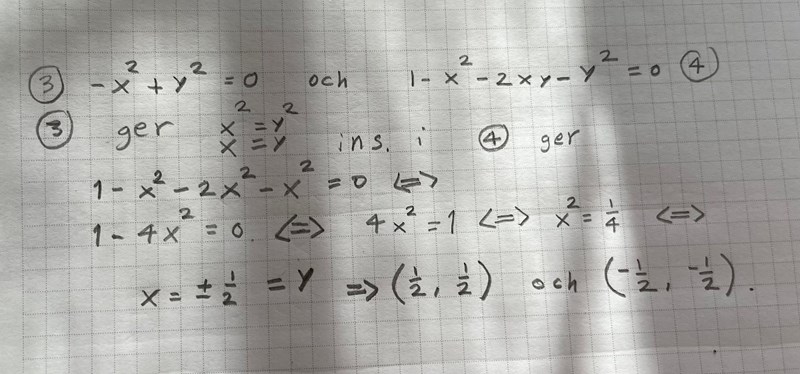 ③ -x² + y² = 0 och 1 - x² - 2xy - y² = 0 ④
③ ger x² = y²
x = y ins. i ④ ger
1 - x² - 2x² - x² = 0 <=>
1 - 4x² = 0. <=> 4x² = 1 <=> x² = 1/4 <=>
x = ± 1/2 = y => (1/2, 1/2) och (-1/2, -1/2).